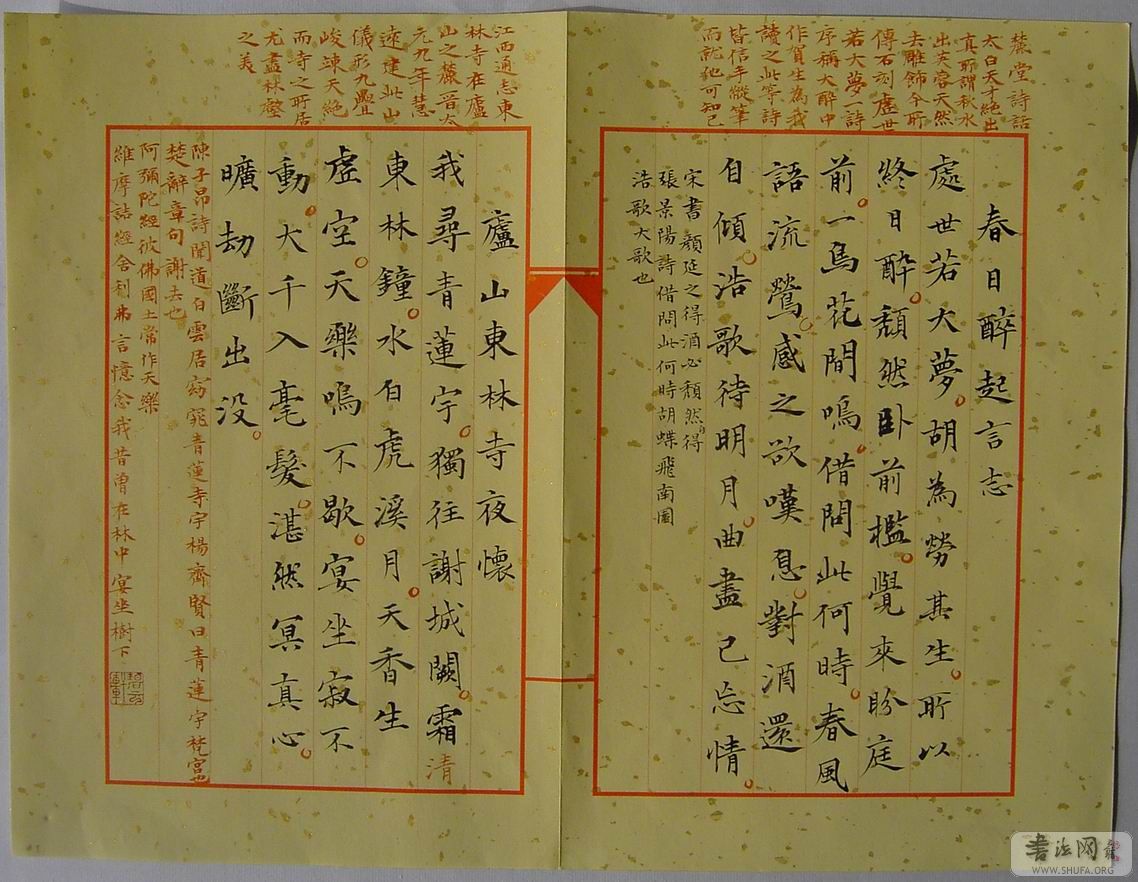 麓堂詩話
太白天才絶出
真所謂秋水
出芙蓉天然
去雕飾今所
傳石刻處世
若大夢一詩
序稱大醉中
作賀生為我
讀之此等詩
皆信手縱筆
而就他可知已
春日醉起言志
處世若大夢胡為勞其生所以
終日醉頹然卧前楹覺來盼庭
前一鳥花間鳴借問此何時春風
語流鶯感之欲嘆息對酒還
自傾浩歌待明月曲盡已忘情
宋書顏延之得酒必頹然自得
張景陽詩借問此何時胡蝶飛南園
浩歌大歌也
江西通志東
林寺在廬
山之麓晉太
元九年慧
遠建此山
儀形九疊
峻竦天絕
而寺之所居
尤盡林壑
之美
廬山東林寺夜懷
我尋青蓮宇獨往謝城闕霜清
東林鐘水白虎溪月天香生
虛空天樂鳴不歇宴坐寂不
動大千入毫髮湛然冥真心
曠劫斷出没
陳子昂詩聞道白雲居窈窕青蓮宇楊齊賢曰青蓮宇梵宮也
楚辭章句謝去也
阿彌陀經彼佛國土常作天樂
維摩詰經舍利弗言憶念我昔曾在林中宴坐樹下
書法网
WWW.SHUFA.ORG